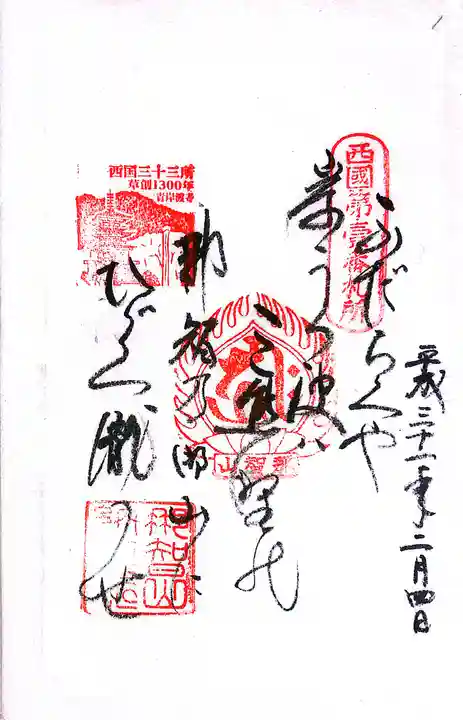 平成三十一年二月四日
西國第壹番札所
ふだらくや
岸うつ波は
三熊野の
那智乃御山に
ひゞく瀧つせ
西国三十三所
草創1300年
青岸渡寺
那智山